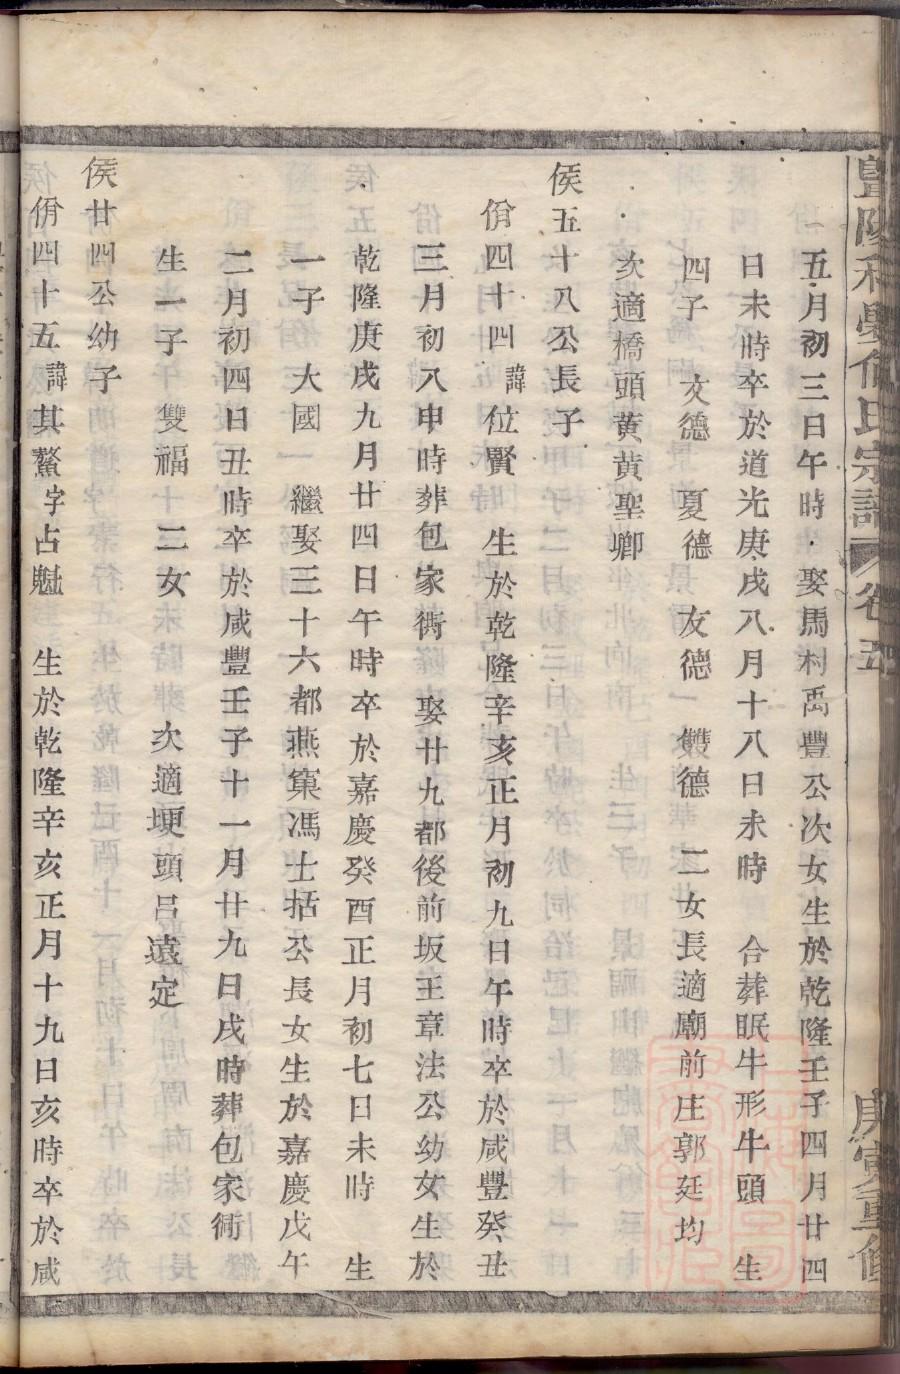 暨陽和㘯何氏宗譜 卷五 庚寅重修
五月初三日午時 娶馬村禹豐公次女生於乾隆壬子四月廿四
日未時卒於道光庚戌八月十八日未時 合葬眠牛形牛頭 生
四子 文德 夏德 友德 雙德 二女長適廟前庄郭廷均
次適橋頭黄黄聖卿
侯五十八公長子
佾四十四諱位賢 生於乾隆辛亥正月初九日午時卒於咸豐癸丑
三月初八申時葬包家衖 娶廿九都後前坂王章法公幼女生於
乾隆庚戌九月廿四日午時卒於嘉慶癸酉正月初七日未時 生
一子 大國 繼娶三十六都燕窠馮士括公長女生於嘉慶戊午
二月初四日丑時卒於咸豐壬子十一月廿九日戌時葬包家衖
生一子 雙福 二女 次適埂頭吕遠定
侯廿四公幼子
佾四十五諱其鰲字占魁 生於乾隆辛亥正月十九日亥時卒於咸